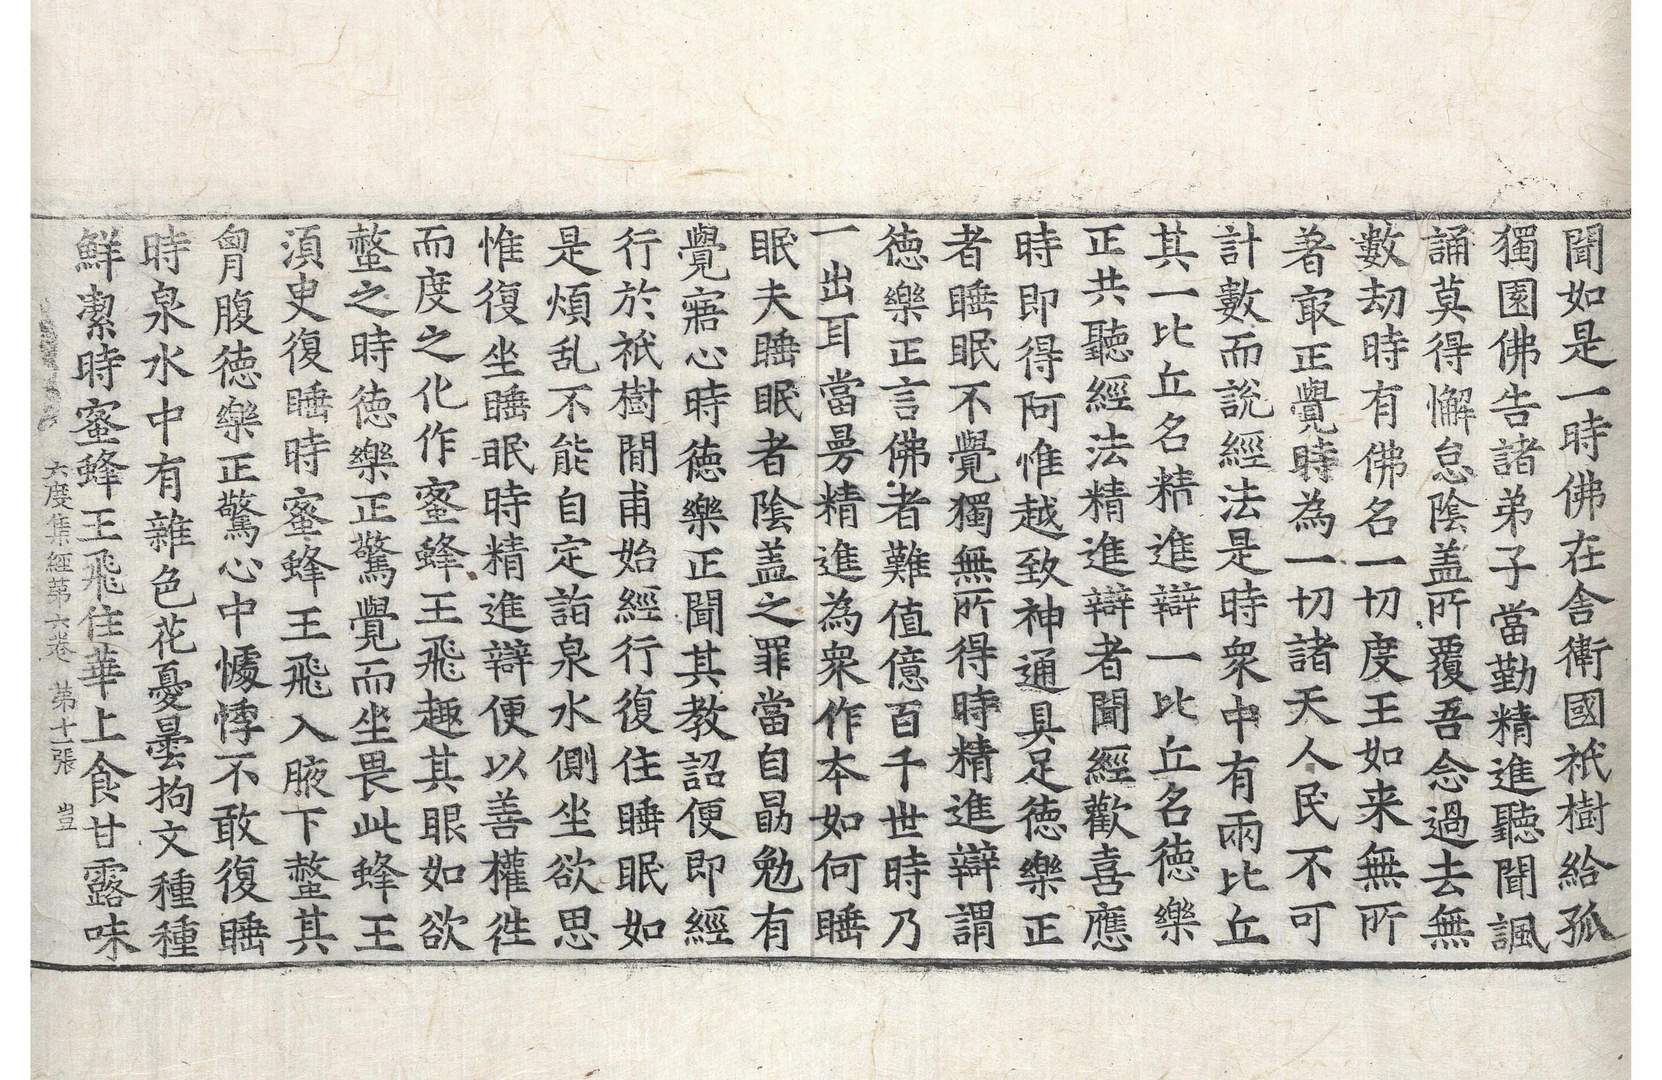 聞如是一時佛在舍衛國祇樹給孤
獨園佛告諸弟子當勤精進聽聞諷
誦莫得懈怠陰盖所覆吾念過去無
數劫時有佛名一切度王如来無所
著㝡正覺時為一切諸天人民不可
計數而說經法是時衆中有兩比丘
其一比丘名精進辯一比丘名徳樂
正共聽經法精進辯者聞經歡喜應
時即得阿惟越致神通具足徳樂正
者睡眠不覺獨無所得時精進辯謂
徳樂正言佛者難值億百千世時乃
一出耳當曼精進為衆作本如何睡
眠夫睡眠者陰盖之罪當自勗勉有
覺寤心時徳樂正聞其教詔便即經
行於祇樹間甫始經行復住睡眠如
是煩乱不能自定詣泉水側坐欲思
惟復坐睡眠時精進辯便以善權徃
而度之化作蜜蜂王飛趣其眼如欲
螫之時徳樂正驚覺而坐畏此蜂王
須臾復睡時蜜蜂王飛入腋下螫其
胷腹徳樂正驚心中懅悸不敢復睡
時泉水中有雜色花憂曇拘文種種
鮮潔時蜜蜂王飛住華上食甘露味
六度集經第六卷 第十一張 豈